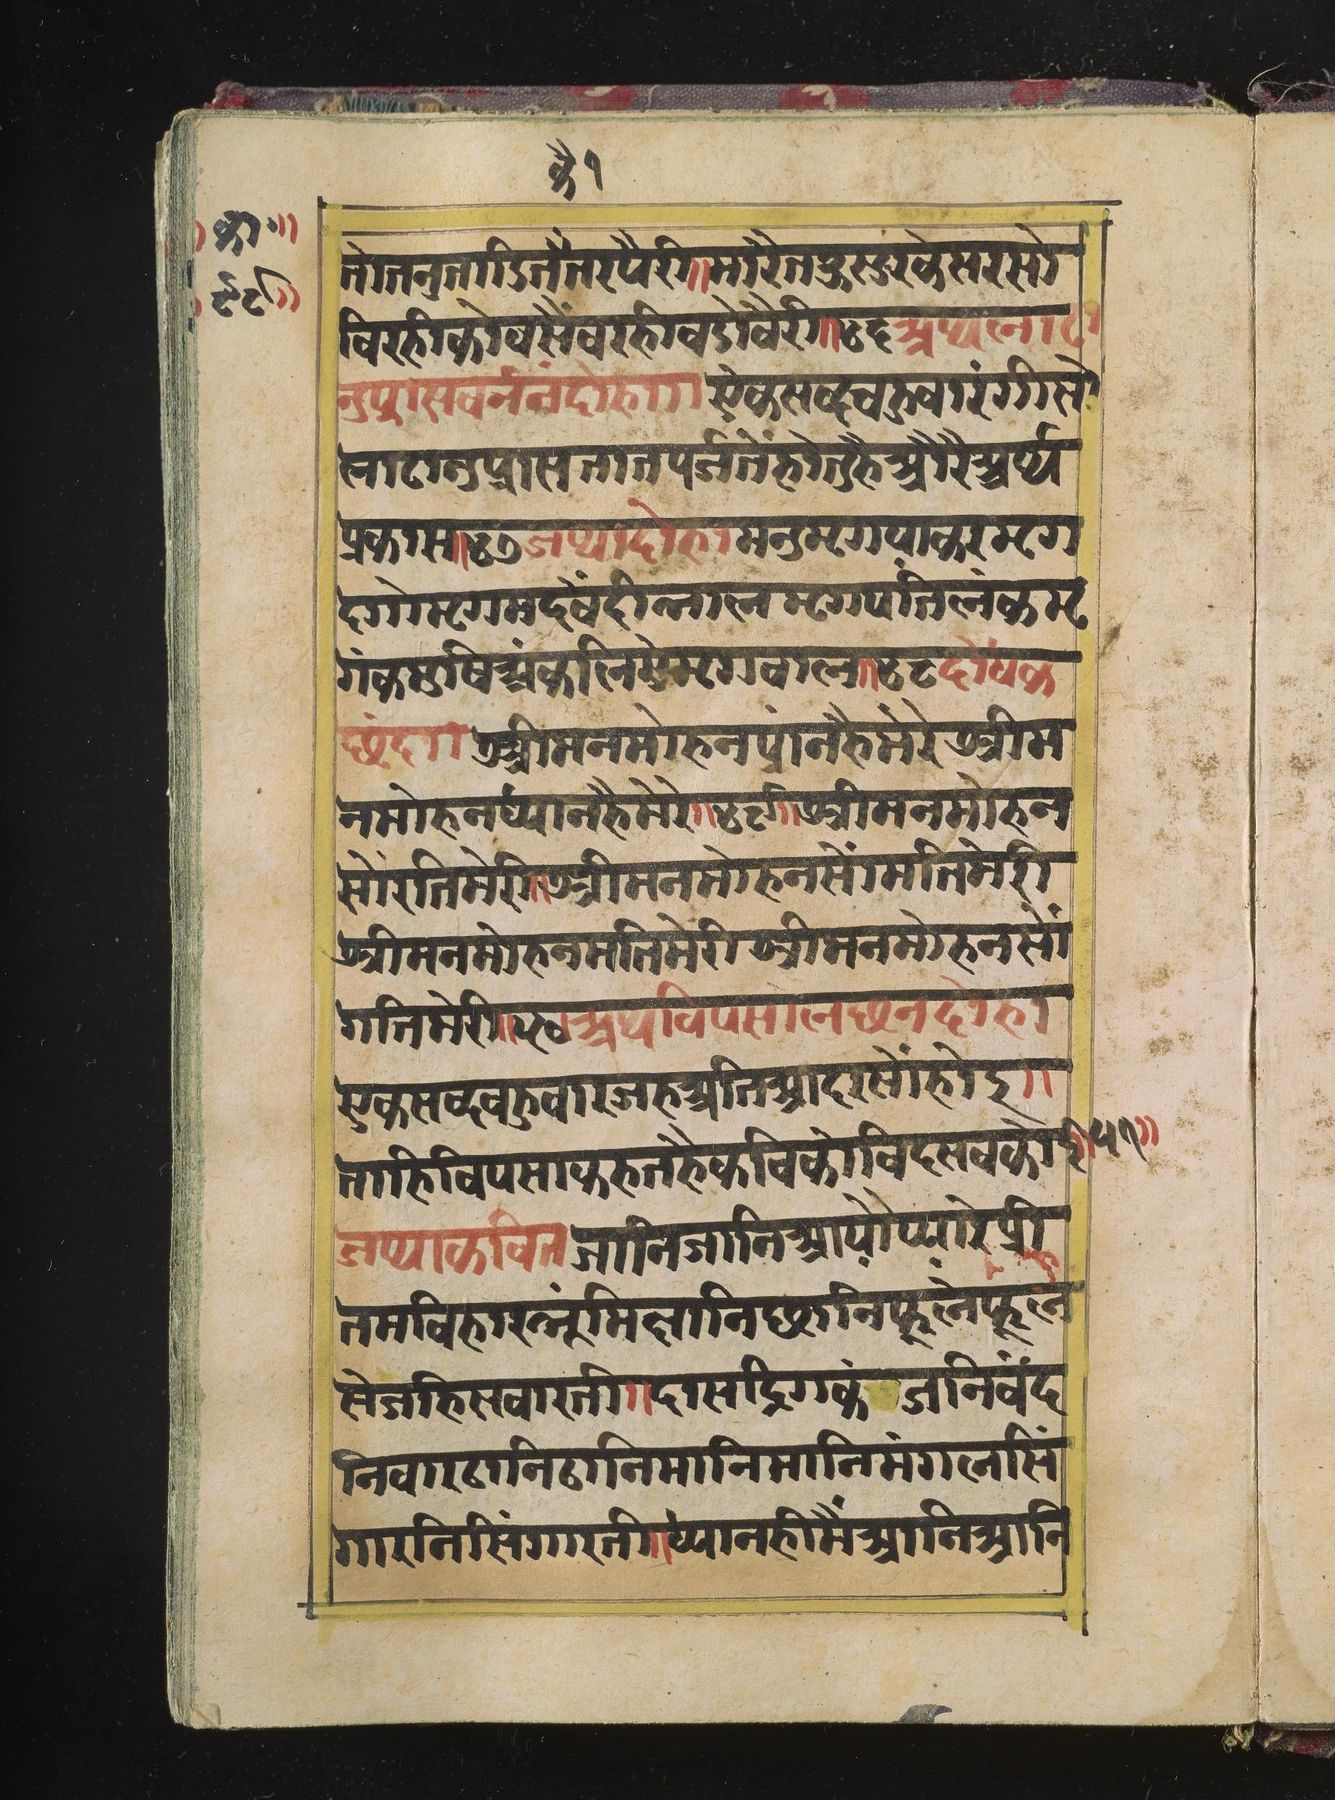 कै१
॥का॰॥
॥९८॥
तोतनुताडितैंतरपैरी॥मारैतऊरुङरकेसरसो
विरहीकोवसैंवरहीवडोवैरी॥४६अथलाटा
नुप्रासवर्ननंदोहा॥ऐकसव्दवहुवारंगीसो
लाटानुप्रासतातपर्जतेंहोतुहैऔरैअर्थ
प्रकास॥४७जथादोहामनुमृगपाकरमृग
दृगोमृगमदवैंदीन्नालमृगपतिलंकमृ
गंकमुषिअंकलिमृगवाल॥४८दोधक
छंद॥श्रीमनमोहनप्रांनहैमेरेश्रीम
नमोहनध्यानहैमेरे॥४९॥श्रीमनमोहन
सोंरतिमेरी॥श्रीमनमोहनसोंमतिमेरी
श्रीमनमोहनमतिमेरीश्रीमनमोहनसों
गतिमेरी॥५०अथविपसालछनदोहा
एकसव्दवहुवारजहअतिआदरसोंहोइ॥
ताहिविपसाकहतहैकविकोविदसवकोइ॥५१॥
जथाकवितजानिजानिआपौप्यारेप्री
तमविहारभूंमिमानिछानिफूलेंफूलें
सेजहिसवारती॥दासद्रिगकंजनिवंद
निवारठानिठानिमानिमानिमंगलसिं
गारनिसिंगारती॥ध्यानहीमैंआनिआनि